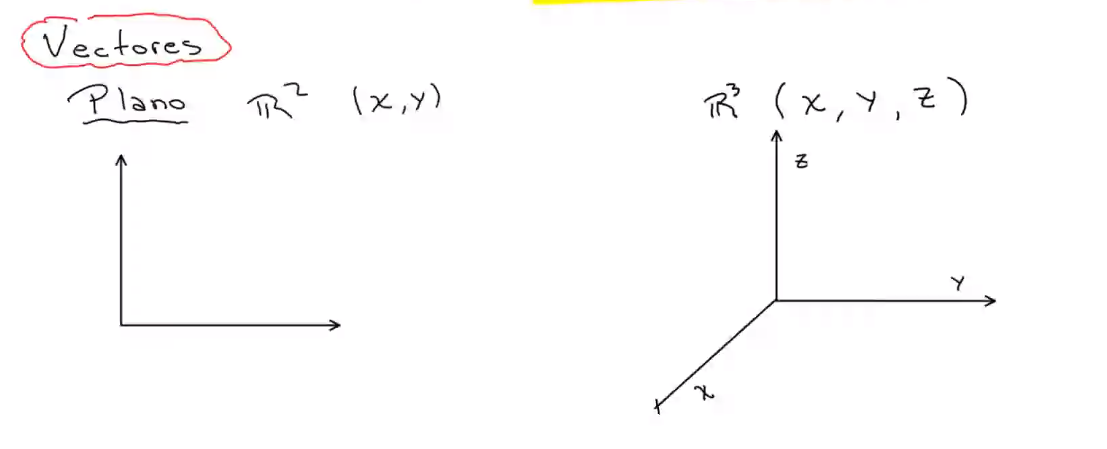 Vectores
Plano ℝ² (x,y)
ℝ³ (x, y, z)
z
y
x